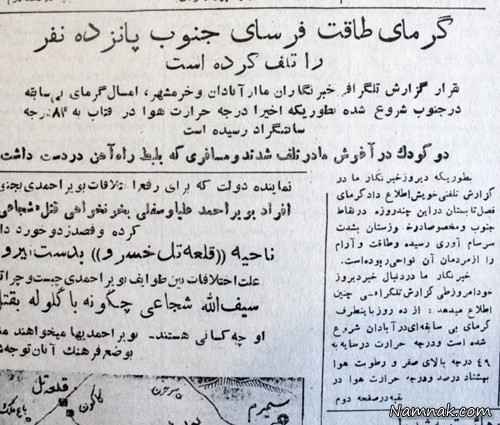 گرمای طاقت فرسای جنوب پانزده نفر
را تلف کرده است
بقرار گزارش تلگرافی خبرنگاران ما از آبادان و خرمشهر، امسال گرمای بی سابقه
در جنوب شروع شده بطوریکه اخیرا درجه حرارت هوا در آفتاب به ۸۲ درجه
سانتیگراد رسیده است
دو کودک در آغوش مادر تلف شدند و مسافری که بلیط راه آهن در دست داشت
بطوریکه دیروز خبرنگار ما در
گزارش تلفنی خویش اطلاع داد گرمای
فصل تابستان در این چند روزه در نقاط
جنوب و مخصوصا در خوزستان بشدت
سرسام آوری رسیده و طاقت و آرام
را از مردمان آن نواحی ربوده است.
خبرنگار ما در دنبال خبر دیروز
خود امروز طی گزارش تلگرافی چنین
اطلاع میدهد: از ده روز باینطرف
گرمای بی سابقه‌ای در آبادان شروع
شده است و درجه حرارت در سایه به
۴۹ درجه بالای صفر و رطوبت هوا
بهشتاد درصد و درجه حرارت هوا در
بقیه در صفحه دوم
نماینده دولت که برای رفع اختلافات بویراحمدی بجنو
افراد بویراحمد علیا و سفلی بخونخواهی قتل «شجاعی
کرده و قصد زد و خورد دا
ناحیه «قلعه تل خسرو» بدست نیرو
علت اختلافات بین طوایف بویراحمدی چیست و چرا ق
سیف‌الله شجاعی چگونه با گلوله بقتل
او چه کسانی هستند- بویراحمدیها میخواهند
بوضع فرهنگ آنان توجه ش
قلعه تل
باغ ملک
سمیرم
Namnak.com